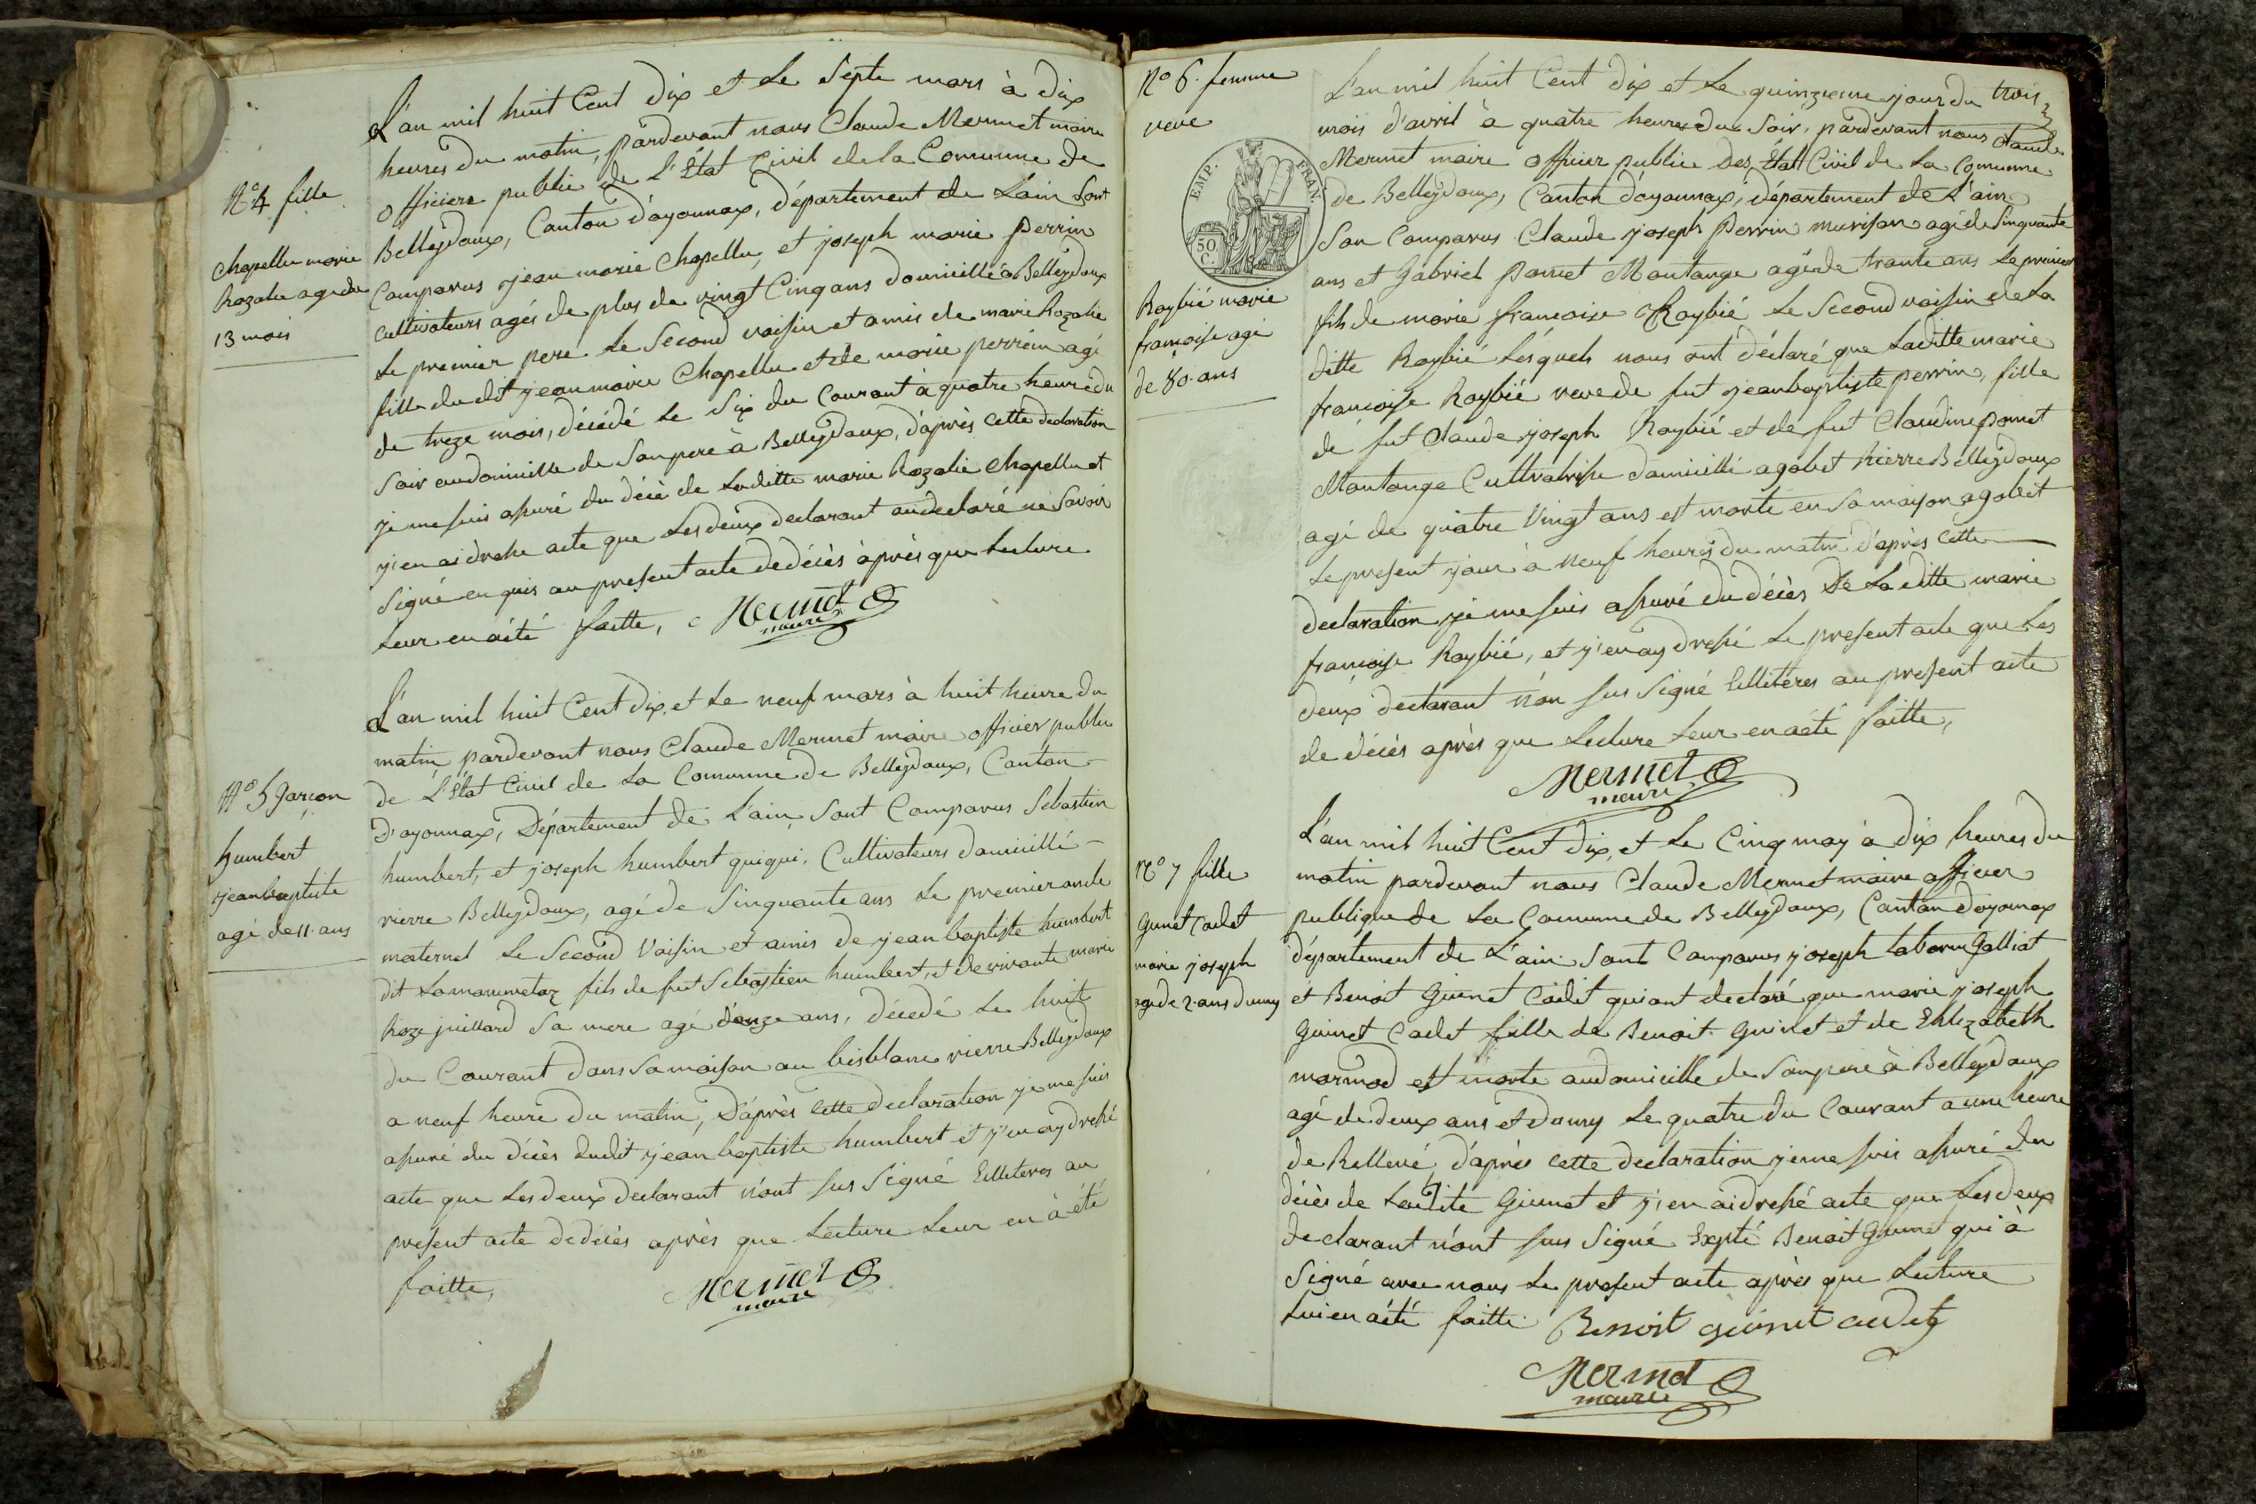 L'an mil huit Cent Dix et Le Septe mars à dix
heures du matin, pardevant nous Claude Mermet maire
Officiere public de L'Etat Civil de la Comunne de
Belleÿdoux, Canton d'ayonnax, département de L'ain Sont
Comparus jean marie Chapellu, et joseph marie perrin
Cultivateurs agés de plus de vingt Cinq ans domicillié a Belleÿdoux
Le premier pere Le Second voisin et amis de marie Rozalie
fille du dit jean marie Chapellu et de marie perrein agé
de treze mois, décédé Le Six du Courant à quatre heure du
Soir audomicille de Son pere à Belleÿdoux, d'aprés Cette declaration
je me suis assuré du décè de Laditte marie Rozalie Chapellu et
j'en ai dresse acte que Les deux declarant on declaré ne Savoir
Signé en quis au present acte de décès après que Lecture
Leur en a été faitte,
Mermet
maire
N° 4 fille
Chapellu marie
Rozalie agé de
13 mois
L'an mil huit Cent Dix, et Le neuf mars à huit heure du
matin, pardevant nous Claude Mermet maire officier public
de L'Etat Civil de La Comunne de Belleÿdoux, Canton
D'ayonnax, Département de L'ain, Sont Comparus Sebastien
humbert, et joseph humbert guigui, Cultivateurs domicillié
rierre Belleÿdoux, agé de Sinquante ans Le premier oncle
maternel Le Second Voisin et amis de jean baptiste humbert
dit Lamarmetaz fils de fut Sebastien humbert, et de vivante marie
Roze juillard Sa mere agé d'onze ans, décédé Le huit
du Courant dans Sa maison au bisblanc rierre Belleÿdoux
a neuf heure du matin, D'aprés Cette declaration je me suis
assuré du décès dudit jean baptiste humbert et j'en ay dressé
acte que Les deux declarant n'ont sus Signé Illiteres au
present acte de décès après que Lecture Leur en à été
faitte,
Mermet
maire
N° 5 garçon
humbert
jean baptiste
agé de 11 ans
N° 6. femme
veve
EMP. FRAN.
50 C.
Raybié marie
françoise agé
de 80. ans
L'an mil huit Cent Dix et Le quinzieme jour du trois
mois d'avril à quatre heures du Soir, pardevant nous Claude
Mermet maire Officier public Des Etat Civil de La Comunne
de Belleÿdoux, Canton d'ayonnax, département de L'ain
Son Comparus Claude joseph Perrin murison agé de Sinquante
ans et Gabriel pomet Montange agé de trante ans Le premier
fils de marie françoise Raybié Le Second voisin de La
ditte Raybié Lesquels nous ont déclaré que Laditte marie
françoise Raybié veve de fut jean baptiste perrin, fille
de fut Claude joseph Raybié et de fut Claudine pomet
Montange Cultivatrise domicillié agobet rierre Belleÿdoux
agé de quatre Vingt ans est morte en Sa maison agobet
Le present jour à neuf heures du matin d'aprés Cette
declaration je me suis assuré du décès De La ditte marie
françoise Raybié, et j'en ay dressé Le present acte que Les
deux declarant n'on sus Signé Illitéres au present acte
de décès après que Lecture Leur en a été faitte,
Mermet
maire
N° 7 fille
Guinet Cadet
marie joseph
agé de 2. ans Dumy
L'an mil huit Cent Dix, et Le Cinq may à dix heures du
matin pardevant nous Claude Mermet maire officier
publique de La Comunne de Belleÿdoux, Canton d'ayonnax
département de L'ain Sont Comparus joseph Tabornn Galliat
et Benoit Guinet Cadet qui ont declaré que marie joseph
Guinet Cadet fille de Benoit Guinet et de Ehlizabeth
marmod est morte audomicille de Son pere à Belleÿdoux
agé de deux ans et Domy Le quatre du Courant a une heure
de Rellevé, d'aprés Cette declaration je me suis assuré du
décès de Laditte Guinet et j'en ai dressé acte que Les deux
declarant n'ont sus Signé Expté Benoit Guinet qui à
Signé avec nous Le present acte après que Lecture
Lui en a été faitte
Benoit Guinet cadet
Mermet
maire